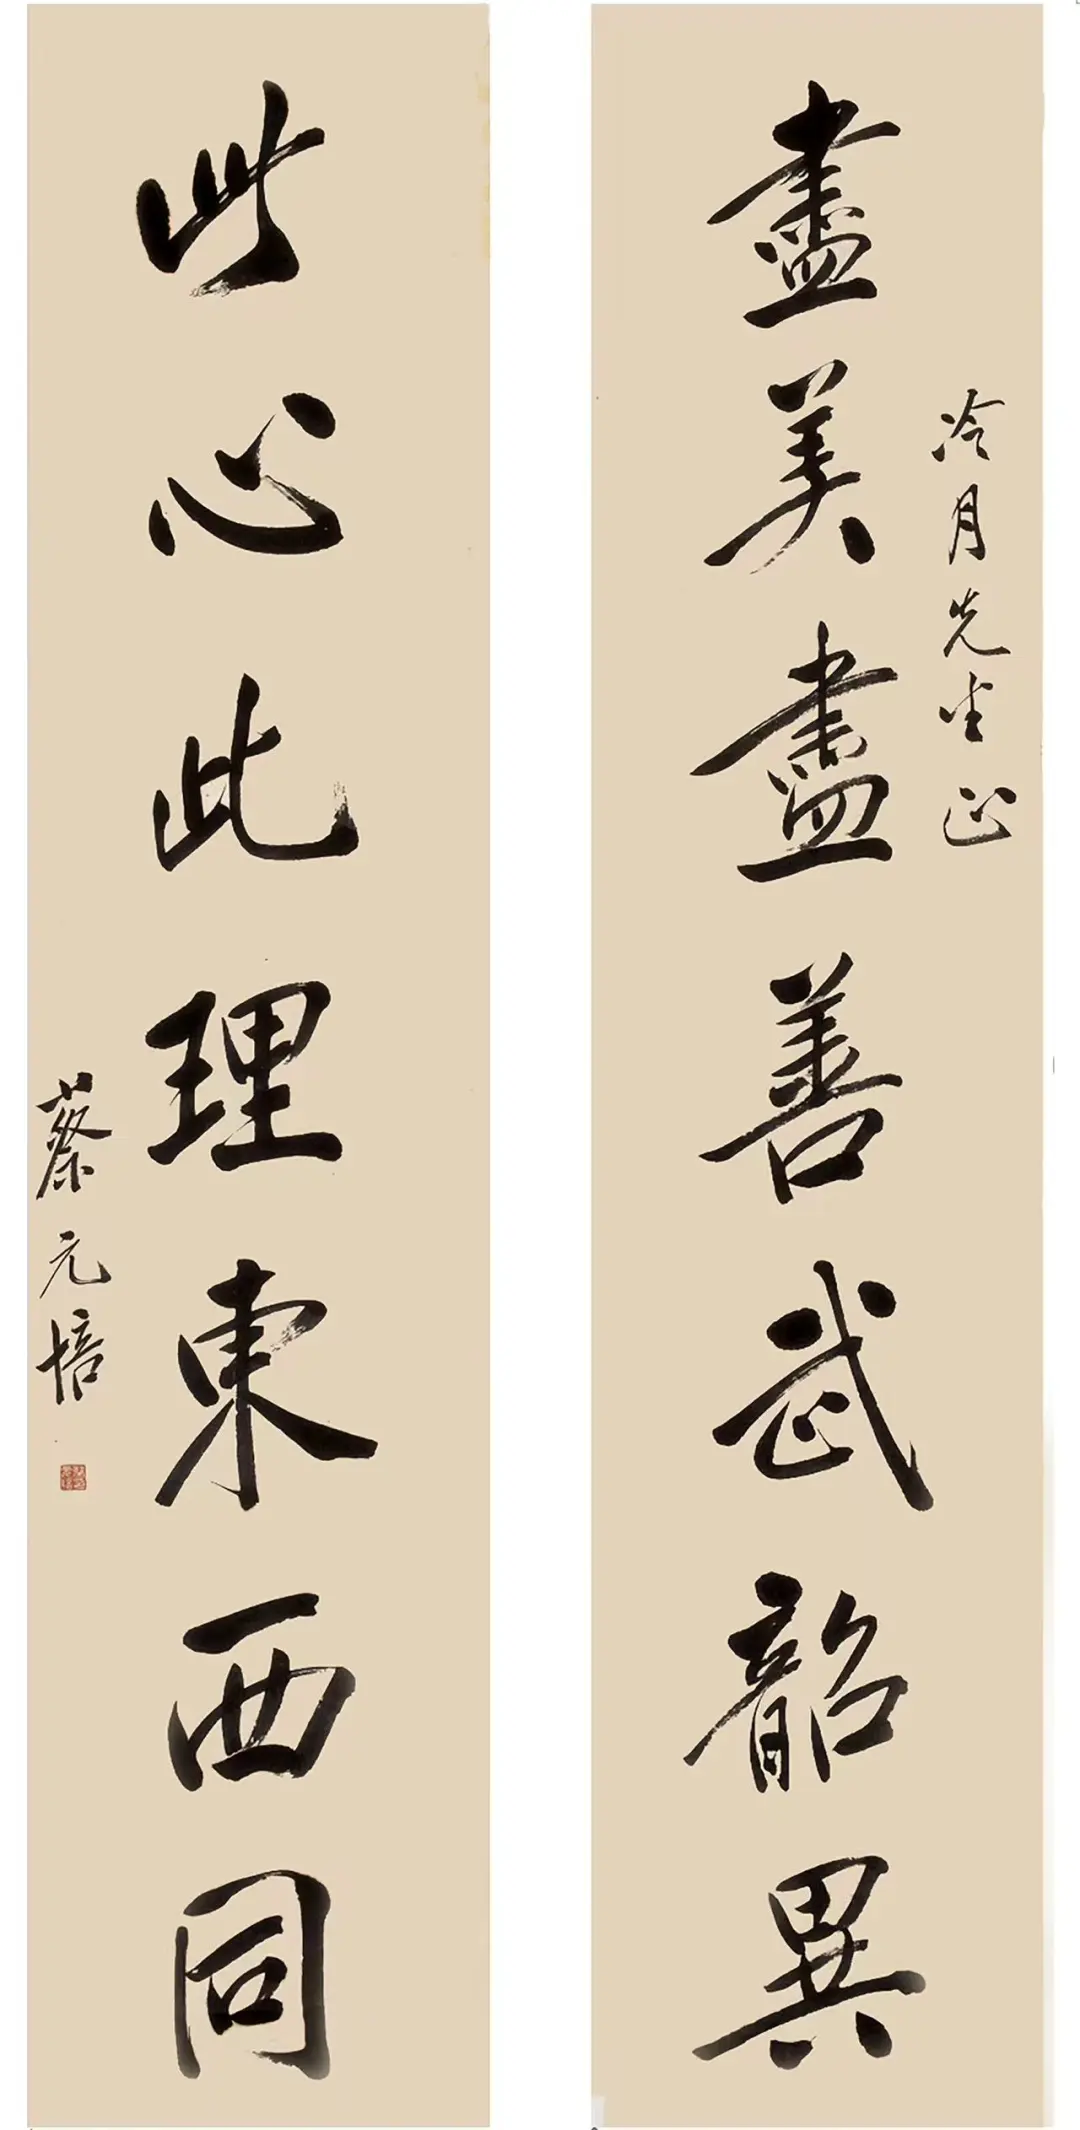 冷月先生正
盡美盡善武韶異
此心此理東西同
蔡元培